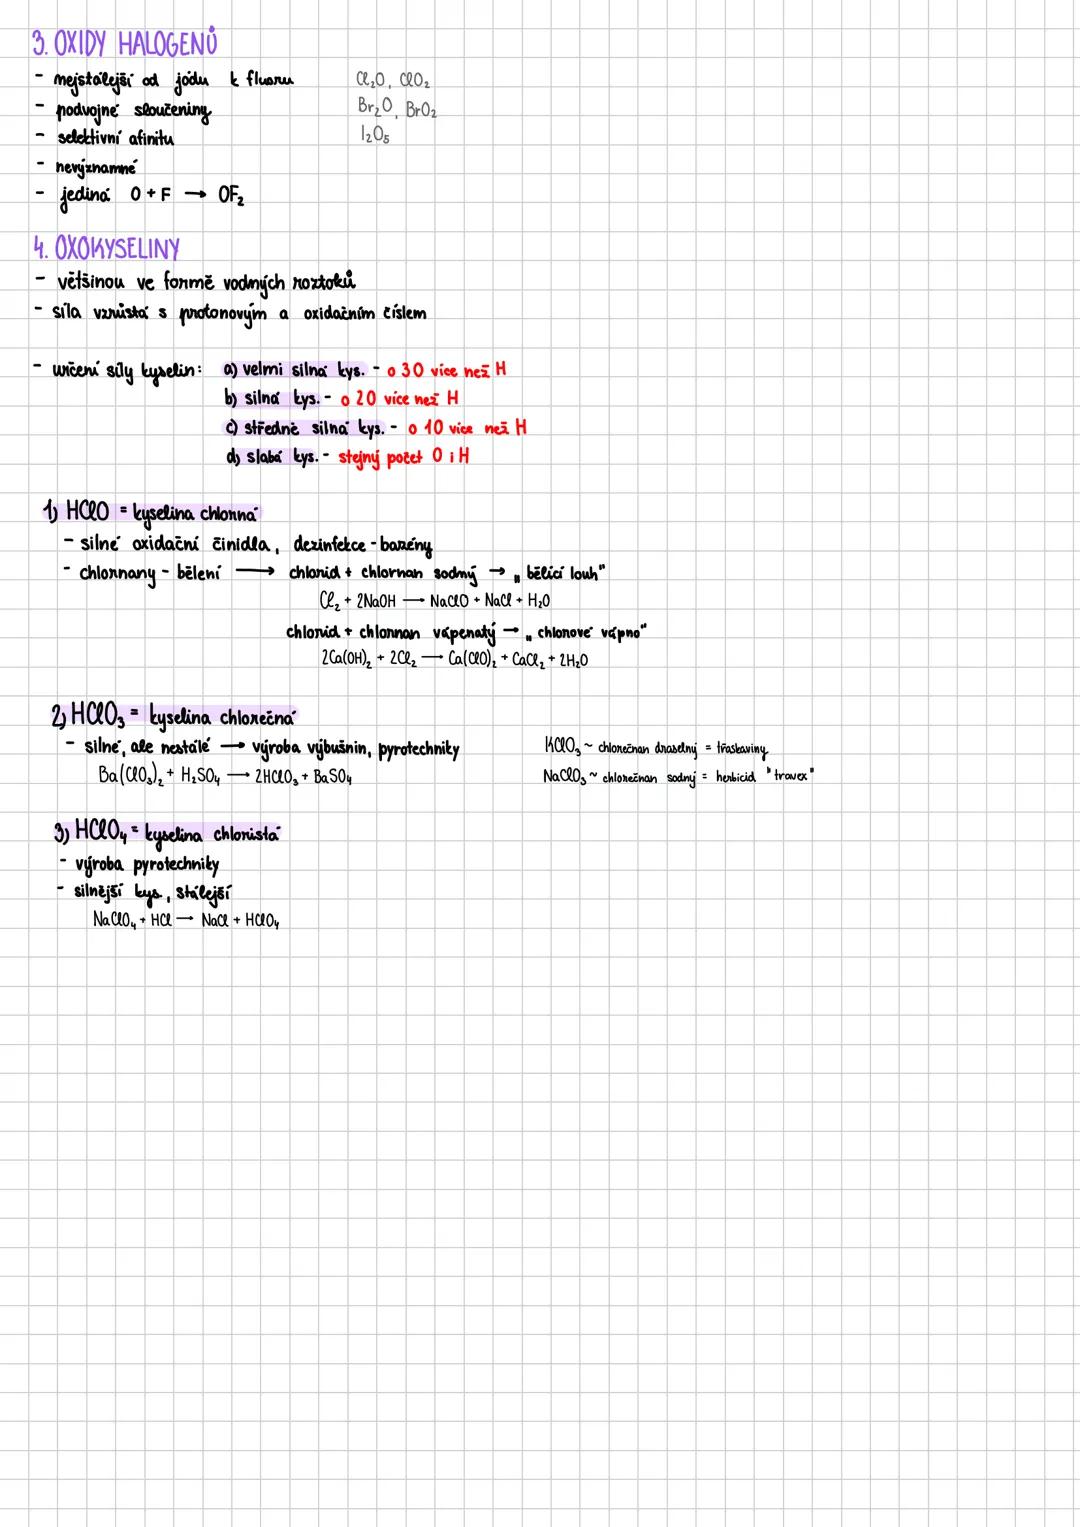 3. OXIDY HALOGENŮ
- nejstálejší od jódu k fluoru Cl₂O, ClO₂
- podvojné sloučeniny Br₂O, BrO₂
- selektivní afinitu I₂O₅
- nevýznamné
- jediná O + F → OF₂
4. OXOKYSELINY
- většinou ve formě vodných roztoků
- síla vzrůstá s protonovým a oxidačním číslem
- určení síly kyselin: a) velmi silná kys. - o 3O více než H
b) silná kys. - o 2O více než H
c) středně silná kys. - o 1O více než H
d) slabá kys. - stejný počet O i H
1) HClO = kyselina chlorná
- silné oxidační činidla, dezinfekce - bazény
- chlornany - bělení → chlorid + chlornan sodný → „bělící louh"
Cl₂ + 2NaOH → NaClO + NaCl + H₂O
chlorid + chlornan vápenatý → „chlorové vápno"
2Ca(OH)₂ + 2Cl₂ → Ca(ClO)₂ + CaCl₂ + 2H₂O
2) HClO₃ = kyselina chlorečná
- silné, ale nestálé → výroba výbušnin, pyrotechniky KClO₃ ~ chlorečnan draselný = třaskaviny
Ba(ClO₃)₂ + H₂SO₄ → 2HClO₃ + BaSO₄ NaClO₃ ~ chlorečnan sodný = herbicid "travex"
3) HClO₄ = kyselina chloristá
- výroba pyrotechniky
- silnější kys., stálejší
NaClO₄ + HCl → NaCl + HClO₄